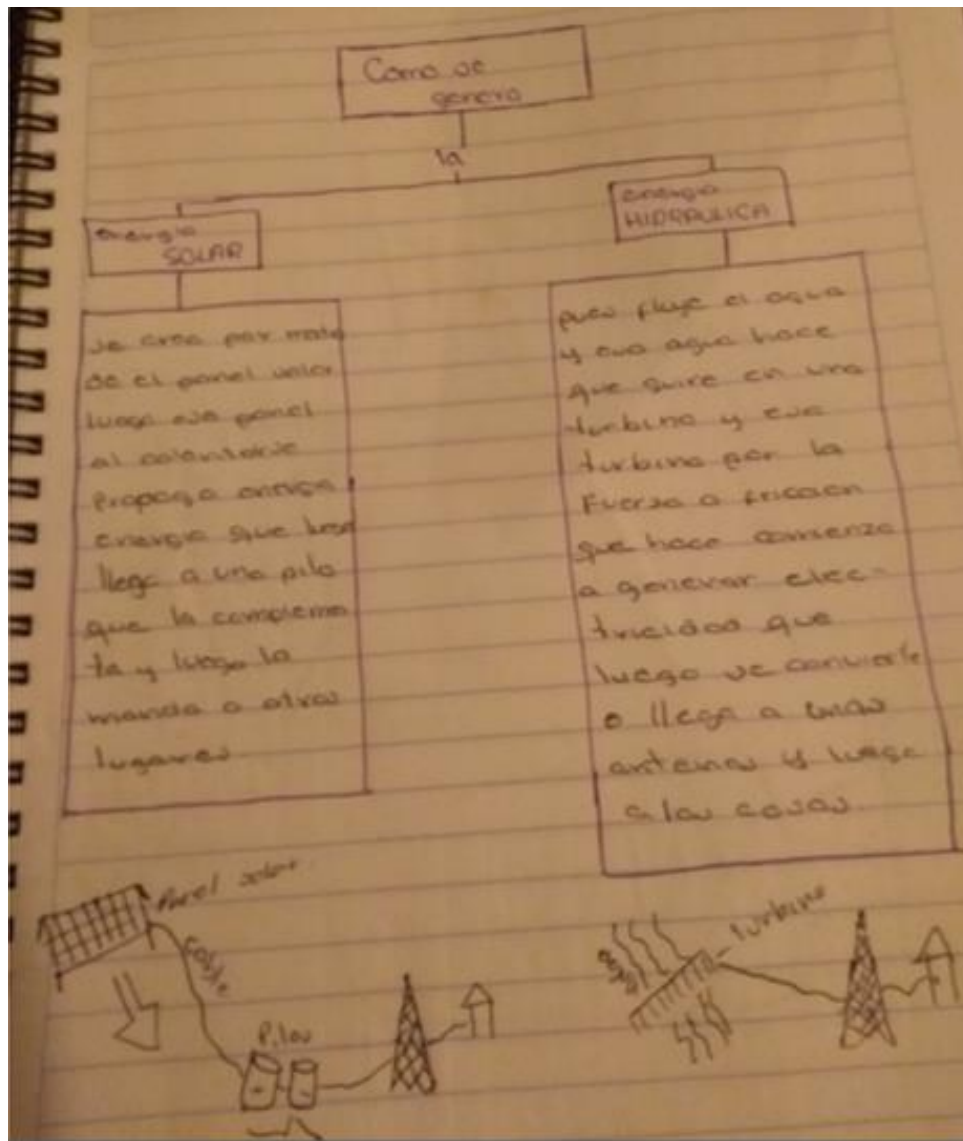 Como se
genera
la
energia
SOLAR
energia
HIDRAULICA
se crea por medio
de el panel solar
luego ese panel
al calentarse
propaga energia
energia que luego
llega a una pila
que la complemen
ta y luego la
manda a otros
lugares
pues fluye el agua
y esa agua hace
que guire en una
turbina y esa
turbina por la
Fuerza o fricción
que hace comienza
a generar elec-
tricidad que
luego se convierte
o llega a unas
antenas y luego
a las casas
Panel solar
cable
Pilas
agua
turbina